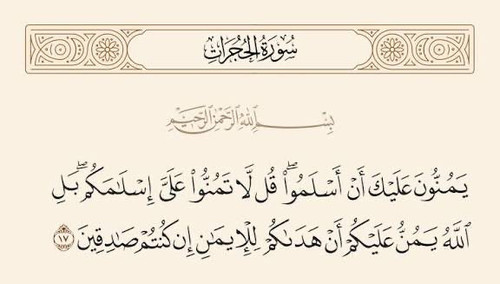 سُورَةُ الحُجُرَاتِ
بِسْمِ اللَّهِ الرَّحْمَٰنِ الرَّحِيمِ
يَمُنُّونَ عَلَيْكَ أَنْ أَسْلَمُوا۟ ۖ قُل لَّا تَمُنُّوا۟ عَلَىَّ إِسْلَٰمَكُم ۖ بَلِ
ٱللَّهُ يَمُنُّ عَلَيْكُمْ أَنْ هَدَىٰكُمْ لِلْإِيمَٰنِ إِن كُنتُمْ صَٰدِقِينَ ١٧